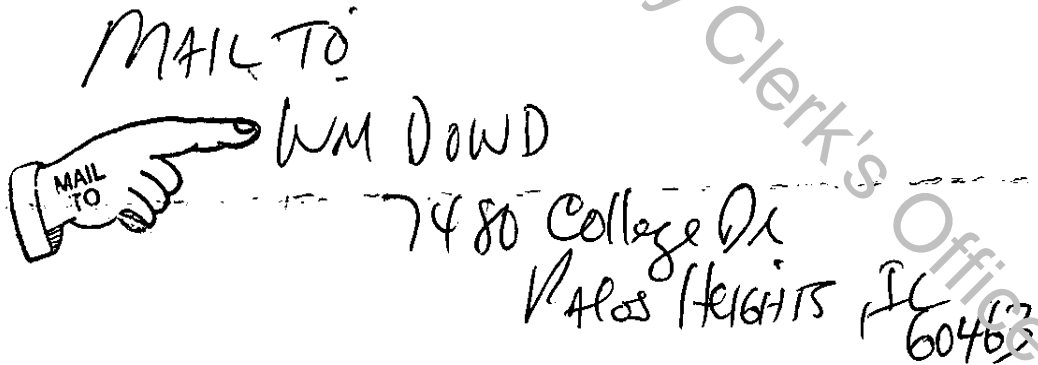 MAIL TO
WM DOWD
MAIL
TO
7480 College Dr
PALOS HEIGHTS, IL
60463
y Clerk's Office